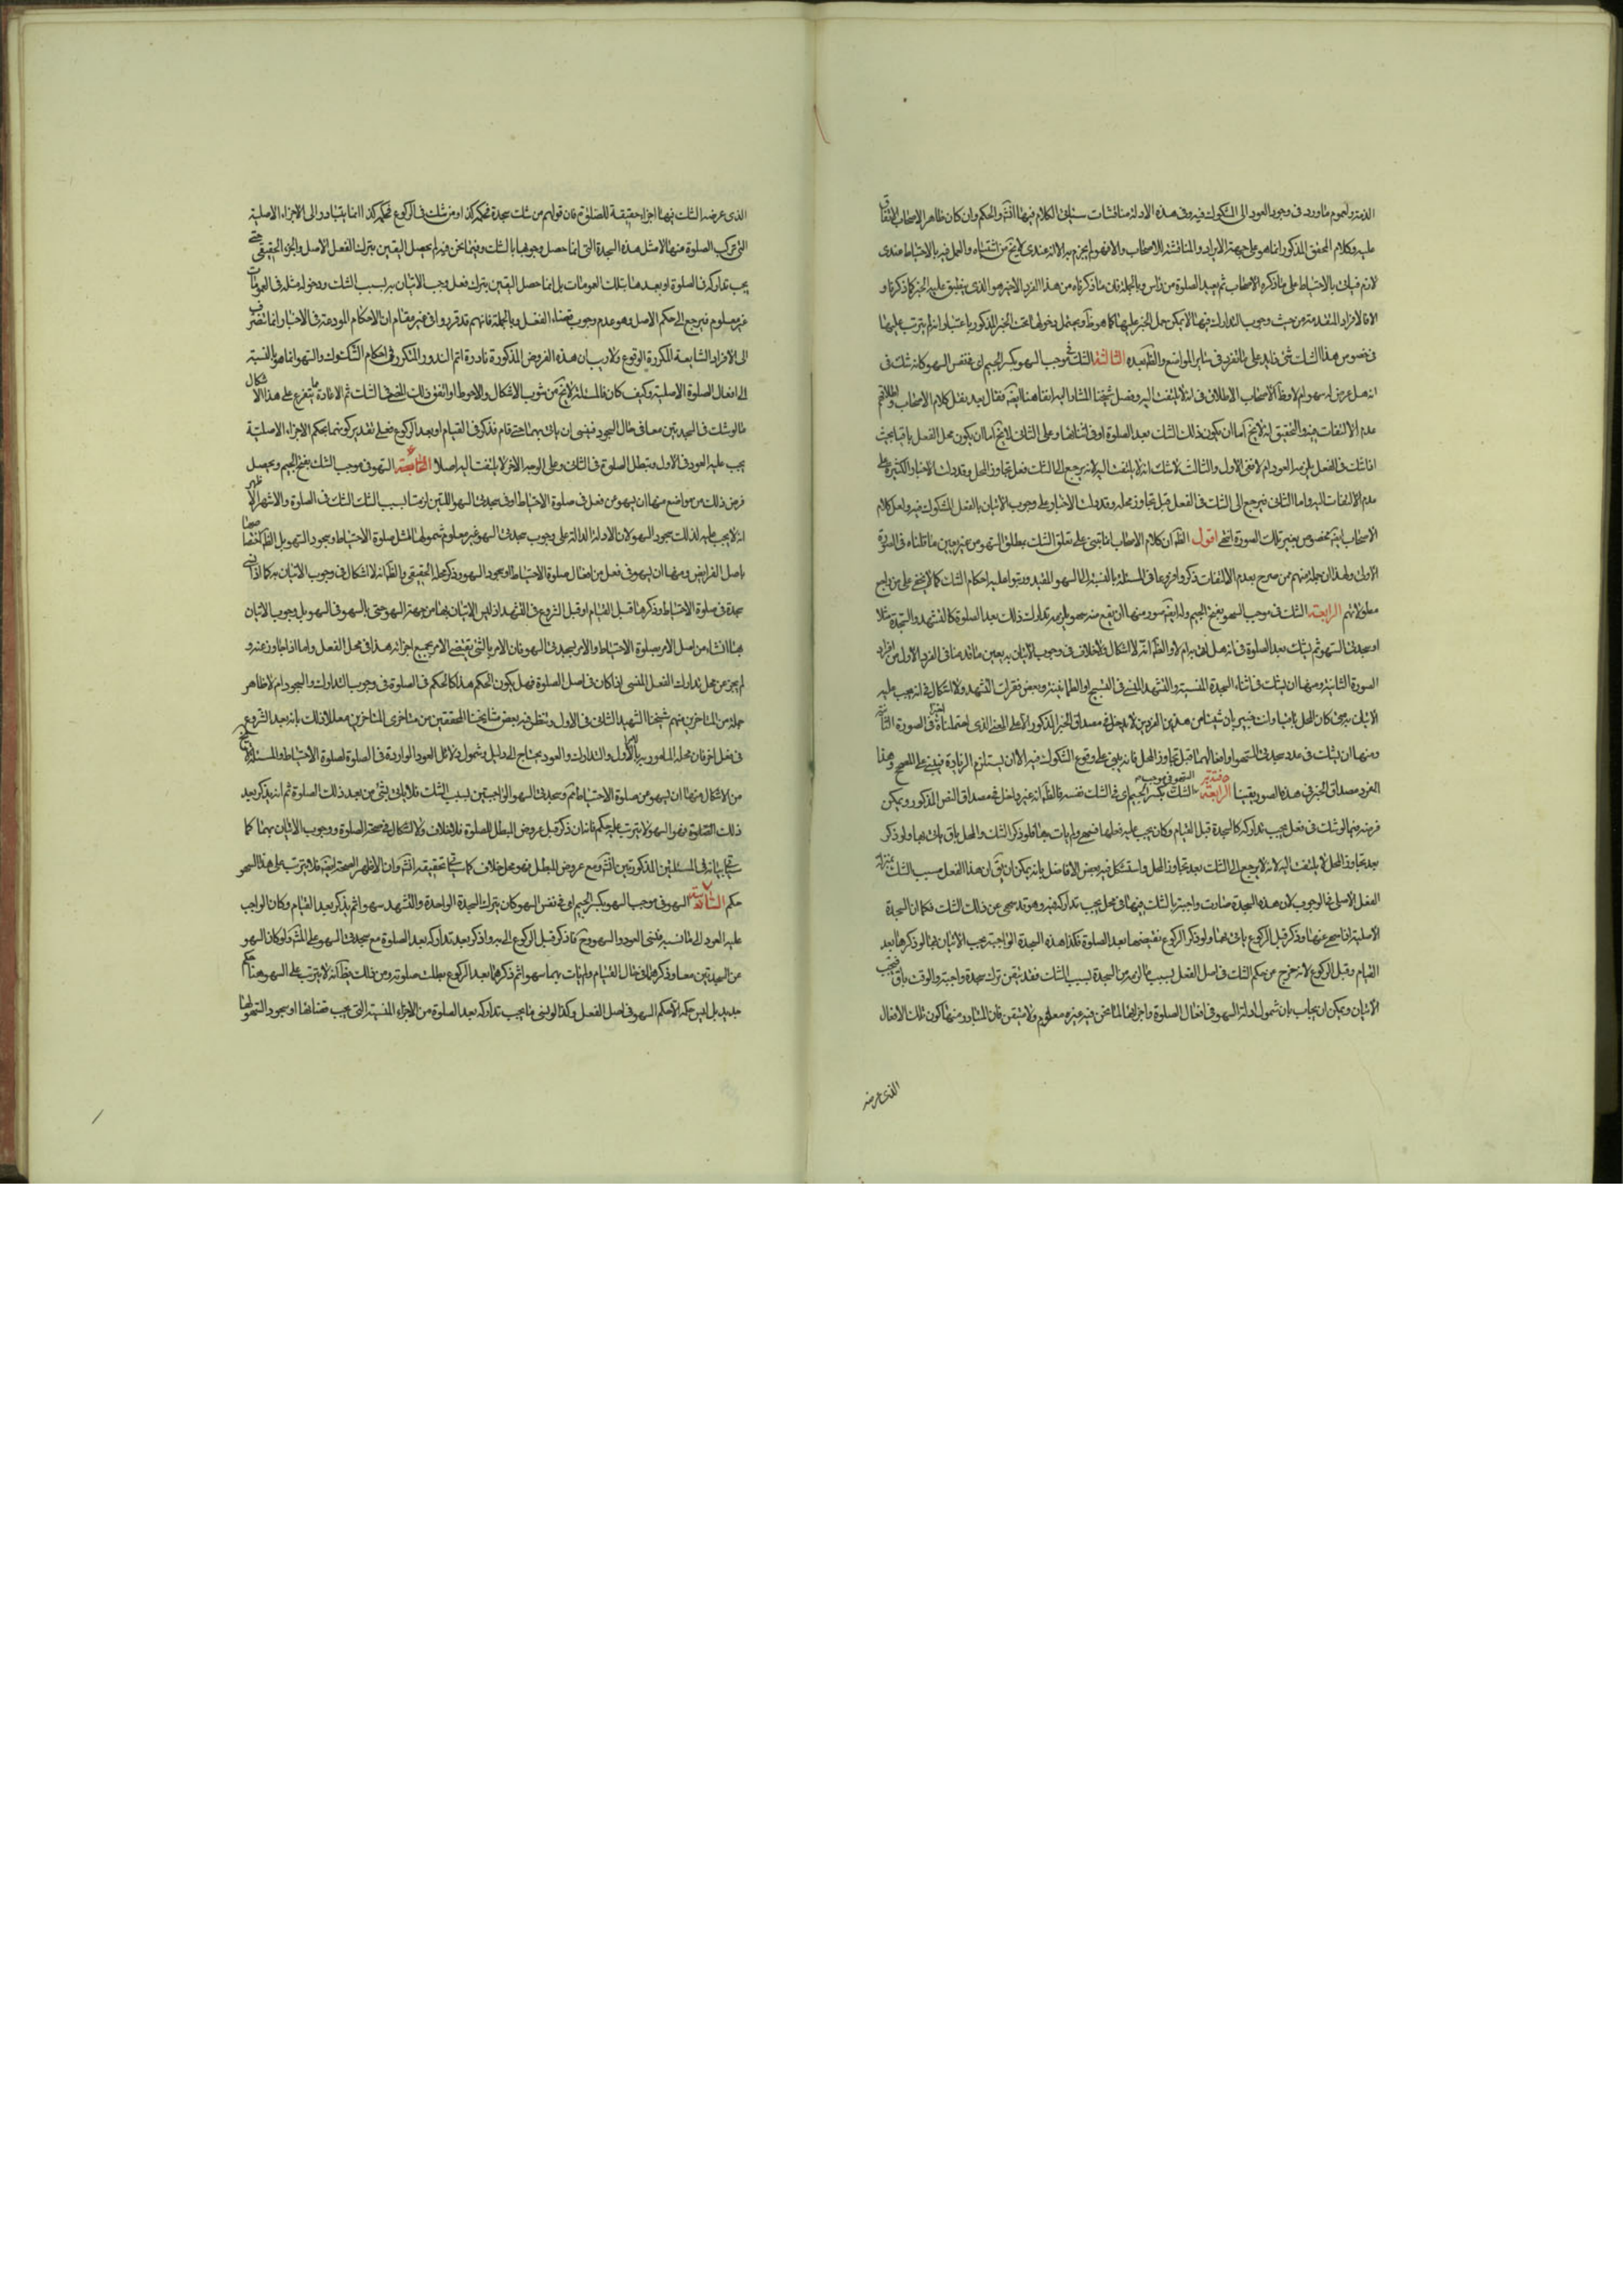 الذمة ولعموم ما ورد في وجوب العود الى المشكوك فيه وفي هذه الادلة مناقشات سيأتي الكلام فيها انش والحكم وان كان ظاهر الاصحاب الاتفاق
عليه وكلام المحقق المذكور انما هو على جهة الايراد والمناقشة للاصحاب والا فهو لم يجزم به الا انه عندي لا يخ من اشتباه والعمل فيه بالاحتياط عندي
لازم فيأتي بالاحتياط على ما ذكره الاصحاب ثم يعيد الصلوة من راس وبالجملة فان ما ذكرناه من هذا الفرد الاخير هو الذي ينطبق عليه الخبر كما ذكرنا و
الا فالافراد المتقدمة من حيث وجوب التدارك فيها لا يمكن حمل الخبر عليها كما هو ظ ويحتمل دخولها تحت الخبر المذكور باعتبار انه لم يترتب عليها
في خصوص هذا الشك شئ زايد على ما تقرر في ساير المواضع والظ بعده الثالثة الشك في موجب السهو بكسر الجيم اي في نفس السهو كأنه شك في
انه هل عرض له سهو ام لا وظ الاصحاب الاطلاق في انه لا يلتفت اليه وفصل شيخنا المشار اليه انفا هنا ايضا فقال بعد نقل كلام الاصحاب واطلاقهم
عدم الالتفات فيه والتحقيق انه لا يخ اما ان يكون ذلك الشك بعد الصلوة او في اثنائها وعلى الثاني لا يخ اما ان يكون محل الفعل باقيا بحيث
اذا شك في الفعل يلزمه العود ام لا ففي الاول والثالث لا شك انه لا يلتفت اليه لانه يرجع الى الشك فعل تجاوز المحل وقد دلت الاخبار الكثيرة على
عدم الالتفات اليه واما الثاني فيرجع الى الشك في الفعل قبل تجاوز محله وقد دلت الاخبار على وجوب الاتيان بالفعل المشكوك فيه ولعل كلام
الاصحاب ايضا مخصوص بغير تلك الصورة انتهى اقول الظ ان كلام الاصحاب انما يبنى على تعلق الشك بمطلق السهو من غير تعيين ما قلناه في الصورة
الاولى ولهذا ان جملة منهم من صرح بعدم الالتفات ذكروا فروعا في المسئلة بالنسبة الى السهو المقيد ورتبوا عليه احكام الشك كما لا يخفى على من راجع
مطولاتهم الرابعة الشك في موجب السهو بفتح الجيم وله ايضا صور منها ان يقع منه سهو يلزمه تدارك ذلك بعد الصلوة كالتشهد والسجدة مثلا
او سجدتي السهو ثم يشك بعد الصلوة في انه هل اتى به ام لا والظ انه لا اشكال ولا خلاف في وجوب الاتيان به بعين ما قدمنا في الفرد الاول من افراد
الصورة الثانية ومنها ان يشك في اثناء السجدة المنسية والتشهد المنسي في التسبيح او الطمأنينة وبعض فقرات التشهد ولا اشكال في انه يجب عليه
الاتيان به متى كان المحل باقيا وانت خبير بان شيئا من هذين الفردين لا يدخل في مصداق الخبر المذكور الا على المعنى الذي احتملناه اخيرا في الصورة الثانية
ومنها ان يشك في عدد سجدتي السهو او افعالهما قبل تجاوز المحل فانه يبنى على وقوع المشكوك فيه الا ان يستلزم الزيادة فيبنى على المصحح وهذا
الفرد مصداق الخبر في هذه الصور يقينا الرابعة السهو في موجب الشك بكسر الجيم اي في الشك نفسه فالظ انه غير داخل في مصداق النص المذكور ويمكن
فرضه فيما لو شك في فعل يجب تداركه كالسجدة قبل القيام وكان يجب عليه فعلها فسهى ولم يات بها فلو ذكر الشك والمحل باق يأتي بها ولو ذكر
بعد تجاوز المحل لا يلتفت اليه لانه لا يرجع الى الشك بعد تجاوز المحل واستشكل فيه بعض الافاضل بانه يمكن ان يق ان هذا الفعل بسبب الشك بمنزلة
الفعل الاصلي في الوجوب لان هذه السجدة صارت واجبة بالشك فيها في محل يجب تداركه فيه وهو قد سهى عن ذلك الشك فكما ان السجدة
الاصلية اذا سهى عنها وذكر قبل الركوع ياتي بها ولو ذكر الركوع يقضيها بعد الصلوة فكذا هذه السجدة الواجبة يجب الاتيان بها لو ذكرها بعد
القيام وقبل الركوع لانه خرج من حكم الشك في اصل الفعل بسبب ما لزمه من السجدة بسبب الشك فقد تيقن ترك سجدة واجبة والوقت باق فتجب
الاتيان ويمكن ان يجاب بان شمول ادلة السهو في افعال الصلوة واجزائها لما نحن فيه غير معلوم ولا متيقن فان المتبادر منها كون تلك الافعال
الذي عرضه
الذي عرضه الشك فيها اجزاء حقيقة للصلوة فان قولهم من شك سجدة فحكمه كذا ومن شك في الركوع فحكمه كذا انما يتبادر الى الاجزاء الاصلية
التي تركب الصلوة منها لا مثل هذه السجدة التي انما حصل وجوبها بالشك وفيما نحن فيه لم يحصل اليقين بترك الفعل الاصل والجزء الحقيقي حتى
يجب تداركه في الصلوة او بعدها بتلك العمومات بل انما حصل اليقين بترك فعل وجب الاتيان به بسبب الشك ودخول مثله في العمومات
غير معلوم فيرجع الى حكم الاصل وهو عدم وجوب قضاء الفعل وبالجملة فانهم قد قرروا في غير مقام ان الاحكام المودعة في الاخبار انما تنصرف
الى الافراد الشايعة المتكررة الوقوع ولا ريب ان هذه الفروض المذكورة نادرة اتم الندور والمتكرر في احكام الشكوك والسهو انما هو بالنسبة
الى افعال الصلوة الاصلية وكيف كان فالمسئلة لا تخ من شوب الاشكال والاحوط لو اتفق ذلك المضي في الشك ثم الاعادة ما يتفرع على هذا الاشكال
ما لو شك في السجدتين معا في حال السجود فنسى ان ياتي بهما حتى قام فذكر في القيام او بعد الركوع فعلى تقدير كونهما بحكم الاجزاء الاصلية
يجب عليه العود في الاول وتبطل الصلوة في الثاني وعلى الوجه الاخر لا يلتفت اليه اصلا الخامسة السهو في موجب الشك بفتح الجيم ويحصل
فرض ذلك من مواضع منها ان يسهو من فعل في صلوة الاحتياط او في سجدتي السهو اللتين لزمتا بسبب الشك في الصلوة والاشهر الاظهر
انه لا يجب عليه لذلك سجود السهو لان الادلة الدالة على وجوب سجدتي السهو غير معلوم شمولها لمثل صلوة الاحتياط وسجود السهو بل الظ اختصاصها
باصل الفرايض ومنها ان يسهو في فعل من افعال صلوة الاحتياط او سجود السهو وذكر محله الحقيقي والظ انه لا اشكال في وجوب الاتيان به كما اذا نسي
سجدة في صلوة الاحتياط وذكرها قبل القيام او قبل الشروع في التشهد اذ ليس الاتيان بها من جهة السهو حتى بالسهو في السهو بل وجوب الاتيان
بها انشاء من اصل الامر بصلوة الاحتياط والامر بسجدتي السهو فان الامر بالشئ يقتضي الامر بجميع اجزائه هذا في محل الفعل واما اذا تجاوز عنه و
لم يجز من محل تدارك الفعل المنسي اذا كان في اصل الصلوة فهل يكون الحكم هذا كالحكم في الصلوة في وجوب التدارك والسجود ام لا ظاهر
جملة من المتاخرين منهم شيخنا الشهيد الثاني في الاول ونظر فيه بعض مشايخنا المحققين من متاخري المتاخرين معللا ذلك بانه بعد الشروع
في فعل اخر فان محله المامور به بالامر الاول والتدارك والعود يحتاج الى دليل وشمول دلائل العود الواردة في الصلوة لصلوة الاحتياط والمسئلة لا تخ
من الاشكال منها ان يسهو من صلوة الاحتياط ثم وسجدتي السهو الواجبتين بسبب الشك فلا ياتي بشئ من بعد ذلك الصلوة ثم انه يذكر بعد
ذلك الصلوة فهو السهو لا يترتب عليه حكم فانه ان ذكر قبل عروض المبطل للصلوة فلا خلاف ولا اشكال في صحة الصلوة ووجوب الاتيان بهما كما
سيأتي بيانه في المسئلتين المذكورتين انش ومع عروض المبطل فهو محل خلاف كما سيأتي تحقيقه انش وان الاظهر الصحة ايضا فلا يترتب على هذا السهو
حكم السهو في موجب السهو بكسر الجيم اي في نفس السهو كان يترك السجدة الواحدة والتشهد سهوا ثم يذكر بعد القيام وكان الواجب
عليه العود الى ما نسيه فنسى العود والسهو وح فاذا ذكر قبل الركوع الى به واذ ذكر بعد تداركه بعد الصلوة مع سجدتي السهو على المش ولو كان السهو
عن السجدتين معا وذكرهما في حال القيام ولم يات بهما سهوا ثم ذكرهما بعد الركوع بطلت صلوته ومن ذلك يظ انه لا يترتب على السهو هنا حكم
جديد بل ليس حكمه الا حكم السهو في اصل الفعل وكذا لو نسي ما يجب تداركه بعد الصلوة من الاجزاء المنسية التي يجب قضائها او سجود السهو لها